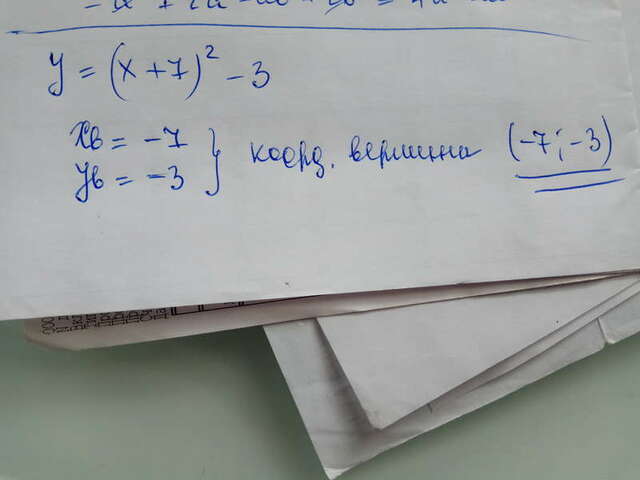 y = (x + 7)² - 3
xв = -7
yв = -3
} коорд. вершина (-7; -3)